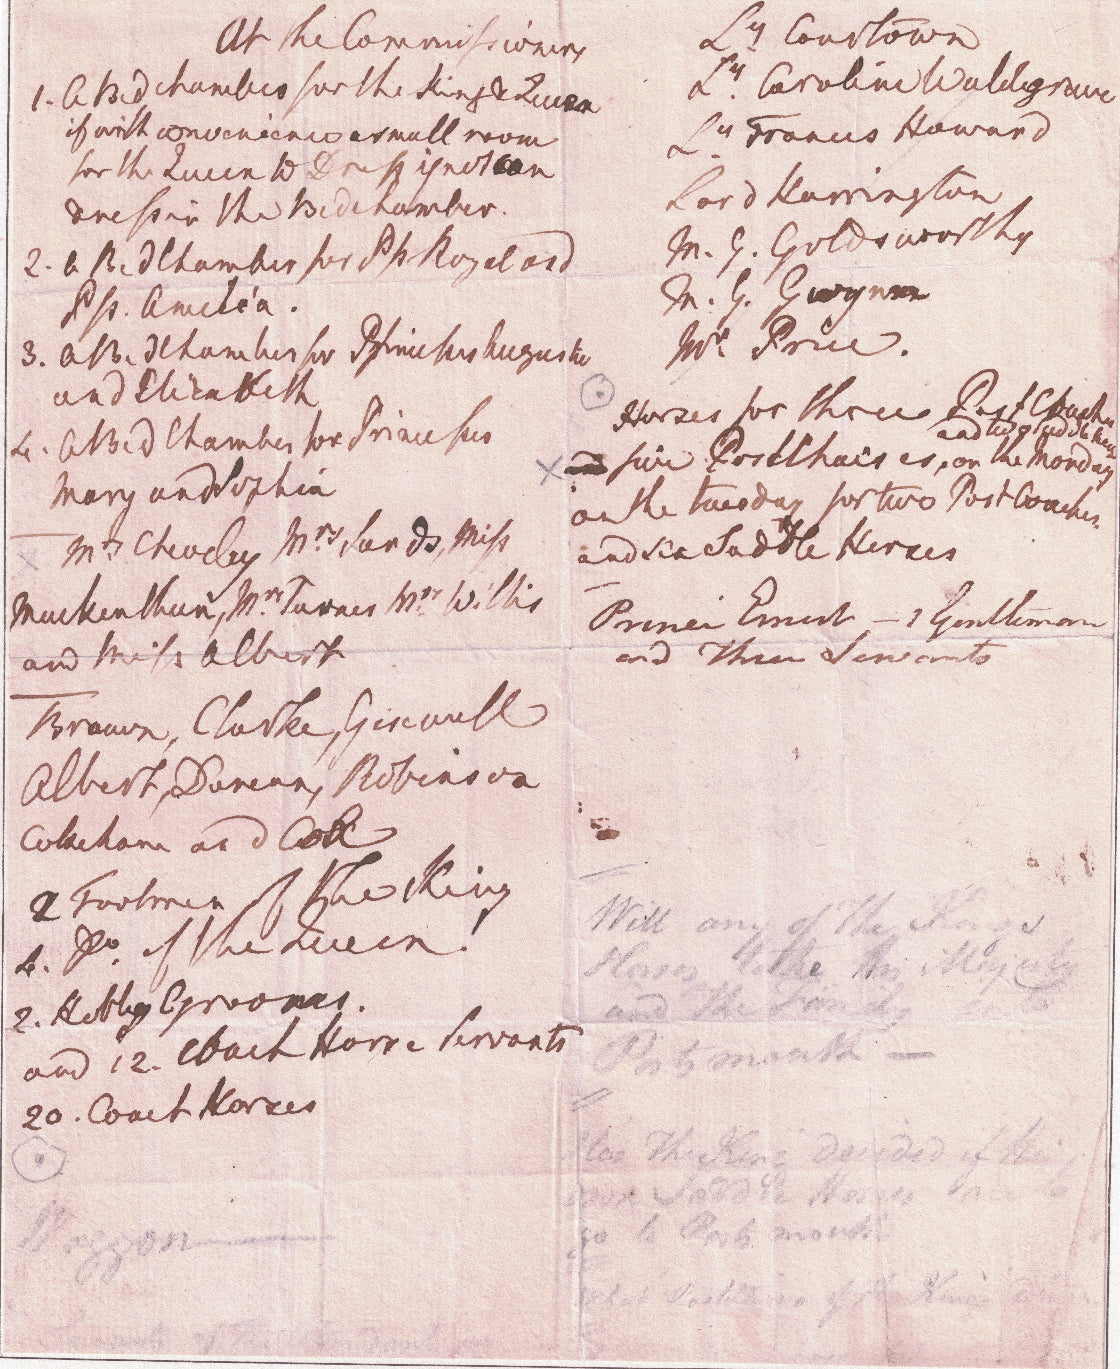 At the Commissioners
1. A Bedchamber for the King & Queen
if with convenience a small room
for the Queen to Dress if not can
dress in the Bedchamber.
2. a Bed Chamber for Pss Royal and
Pss. Amelia.
3. a Bed Chamber for Princesses Augusta
and Elizabeth
4. a Bed Chamber for Princesses
Mary and Sophia
Mrs Cheveley Mrs Sands, Miss
Mackenthun, Mrs Turner Mrs Willis
and Miss Albert
Brawn, Clarke, Giswell
Albert, Duncan, Robinson
Cobeham and Cox
2 Footmen of the King
4. Do. of the Queen.
2. Hobby Grooms.
and 12. Coach Horse Servants
20. Coach Horses
Waggon
Ly Courtown
Ly. Caroline Waldegrave
Ly Francis Howard
Lord Harrington
M. G. Goldsworthy
M. G. Gwynn
Mr. Price.
Horses for three Post Coaches
and two Saddle Horses
five Post Chaises, on the Monday
on the tuesday for two Post Coaches
and six Saddle Horses
Prince Ernest — 1 Gentleman
and Three Servants
Will any of The Kings
Horses take His Majesty
and The Family into
Portsmouth —
Has The King decided if His
own Saddle Horses are to
go to Portsmouth
what Postilions of the King's